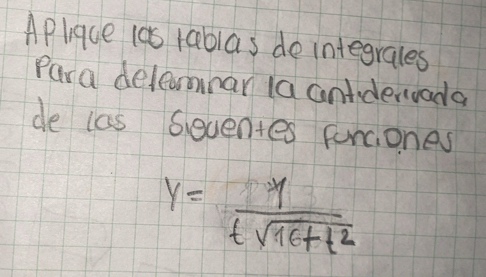 Aplique las tablas de integrales
Para determinar la antiderivada
de las siguientes funciones
Y = 1 / t√16+t²